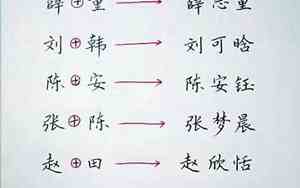 刘⊕韩→刘可晗
陈⊕安→陈安钰
张⊕陈→张梦晨
赵⊕田→赵欣恬